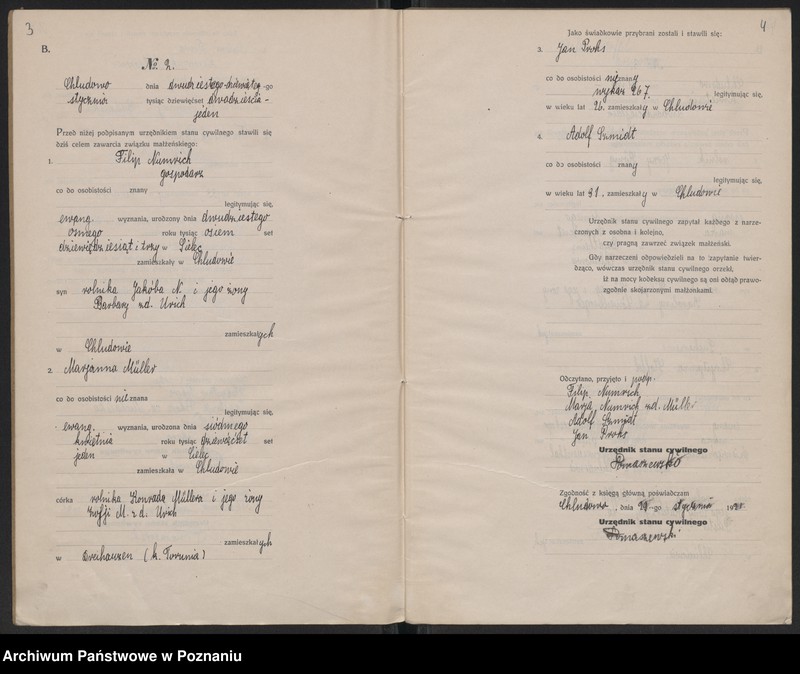 3
B.
№ 2.
Chludowo dnia dwudziestego dziewiątego -go
stycznia tysiąc dziewięćset dwadzieścia-
jeden
Przed niżej podpisanym urzędnikiem stanu cywilnego stawili się
dziś celem zawarcia związku małżeńskiego:
1. Filip Numrich
gospodarz
co do osobistości znany
legitymując się,
ewang. wyznania, urodzony dnia dwudziestego
ósmego roku tysiąc osiem set
dziewięćdziesiąt i trzy w Sielec
zamieszkały w Chludowie
syn rolnika Jakóba N. i jego żony
Barbary zd. Urich
zamieszkałych
w Chludowie
2. Marjanna Müller
co do osobistości nieznana
legitymując się,
ewang. wyznania, urodzona dnia siódmego
kwietnia roku tysiąc dziewięćset set
jeden w Sielec
zamieszkała w Chludowie
córka rolnika Konrada Müllera i jego żony
Zofji M. z d. Urich
zamieszkałych
w (k. Torunia)
4
Jako świadkowie przybrani zostali i stawili się:
3. Jan Proks
co do osobistości nieznany
wykaz 267. legitymując się,
w wieku lat 26. zamieszkały w Chludowie
4. Adolf Szmidt
co do osobistości znany
legitymując się,
w wieku lat 31, zamieszkały w Chludowie
Urzędnik stanu cywilnego zapytał każdego z narze-
czonych z osobna i kolejno,
czy pragną zawrzeć związek małżeński.
Gdy narzeczeni odpowiedzieli na to zapytanie twier-
dząco, wówczas urzędnik stanu cywilnego orzekł,
iż na mocy kodeksu cywilnego są oni odtąd prawo-
zgodnie skojarzonymi małżonkami.
Odczytano, przyjęto i podp.
Filip Numrich,
Marja Numrich zd. Müller
Adolf Szmidt
Jan Proks
Urzędnik stanu cywilnego
Pomaszewski
Zgodność z księgą główną poświadczam
Chludowo, dnia 29-go stycznia 1921
Urzędnik stanu cywilnego
Pomaszewski
Archiwum Państwowe w Poznaniu